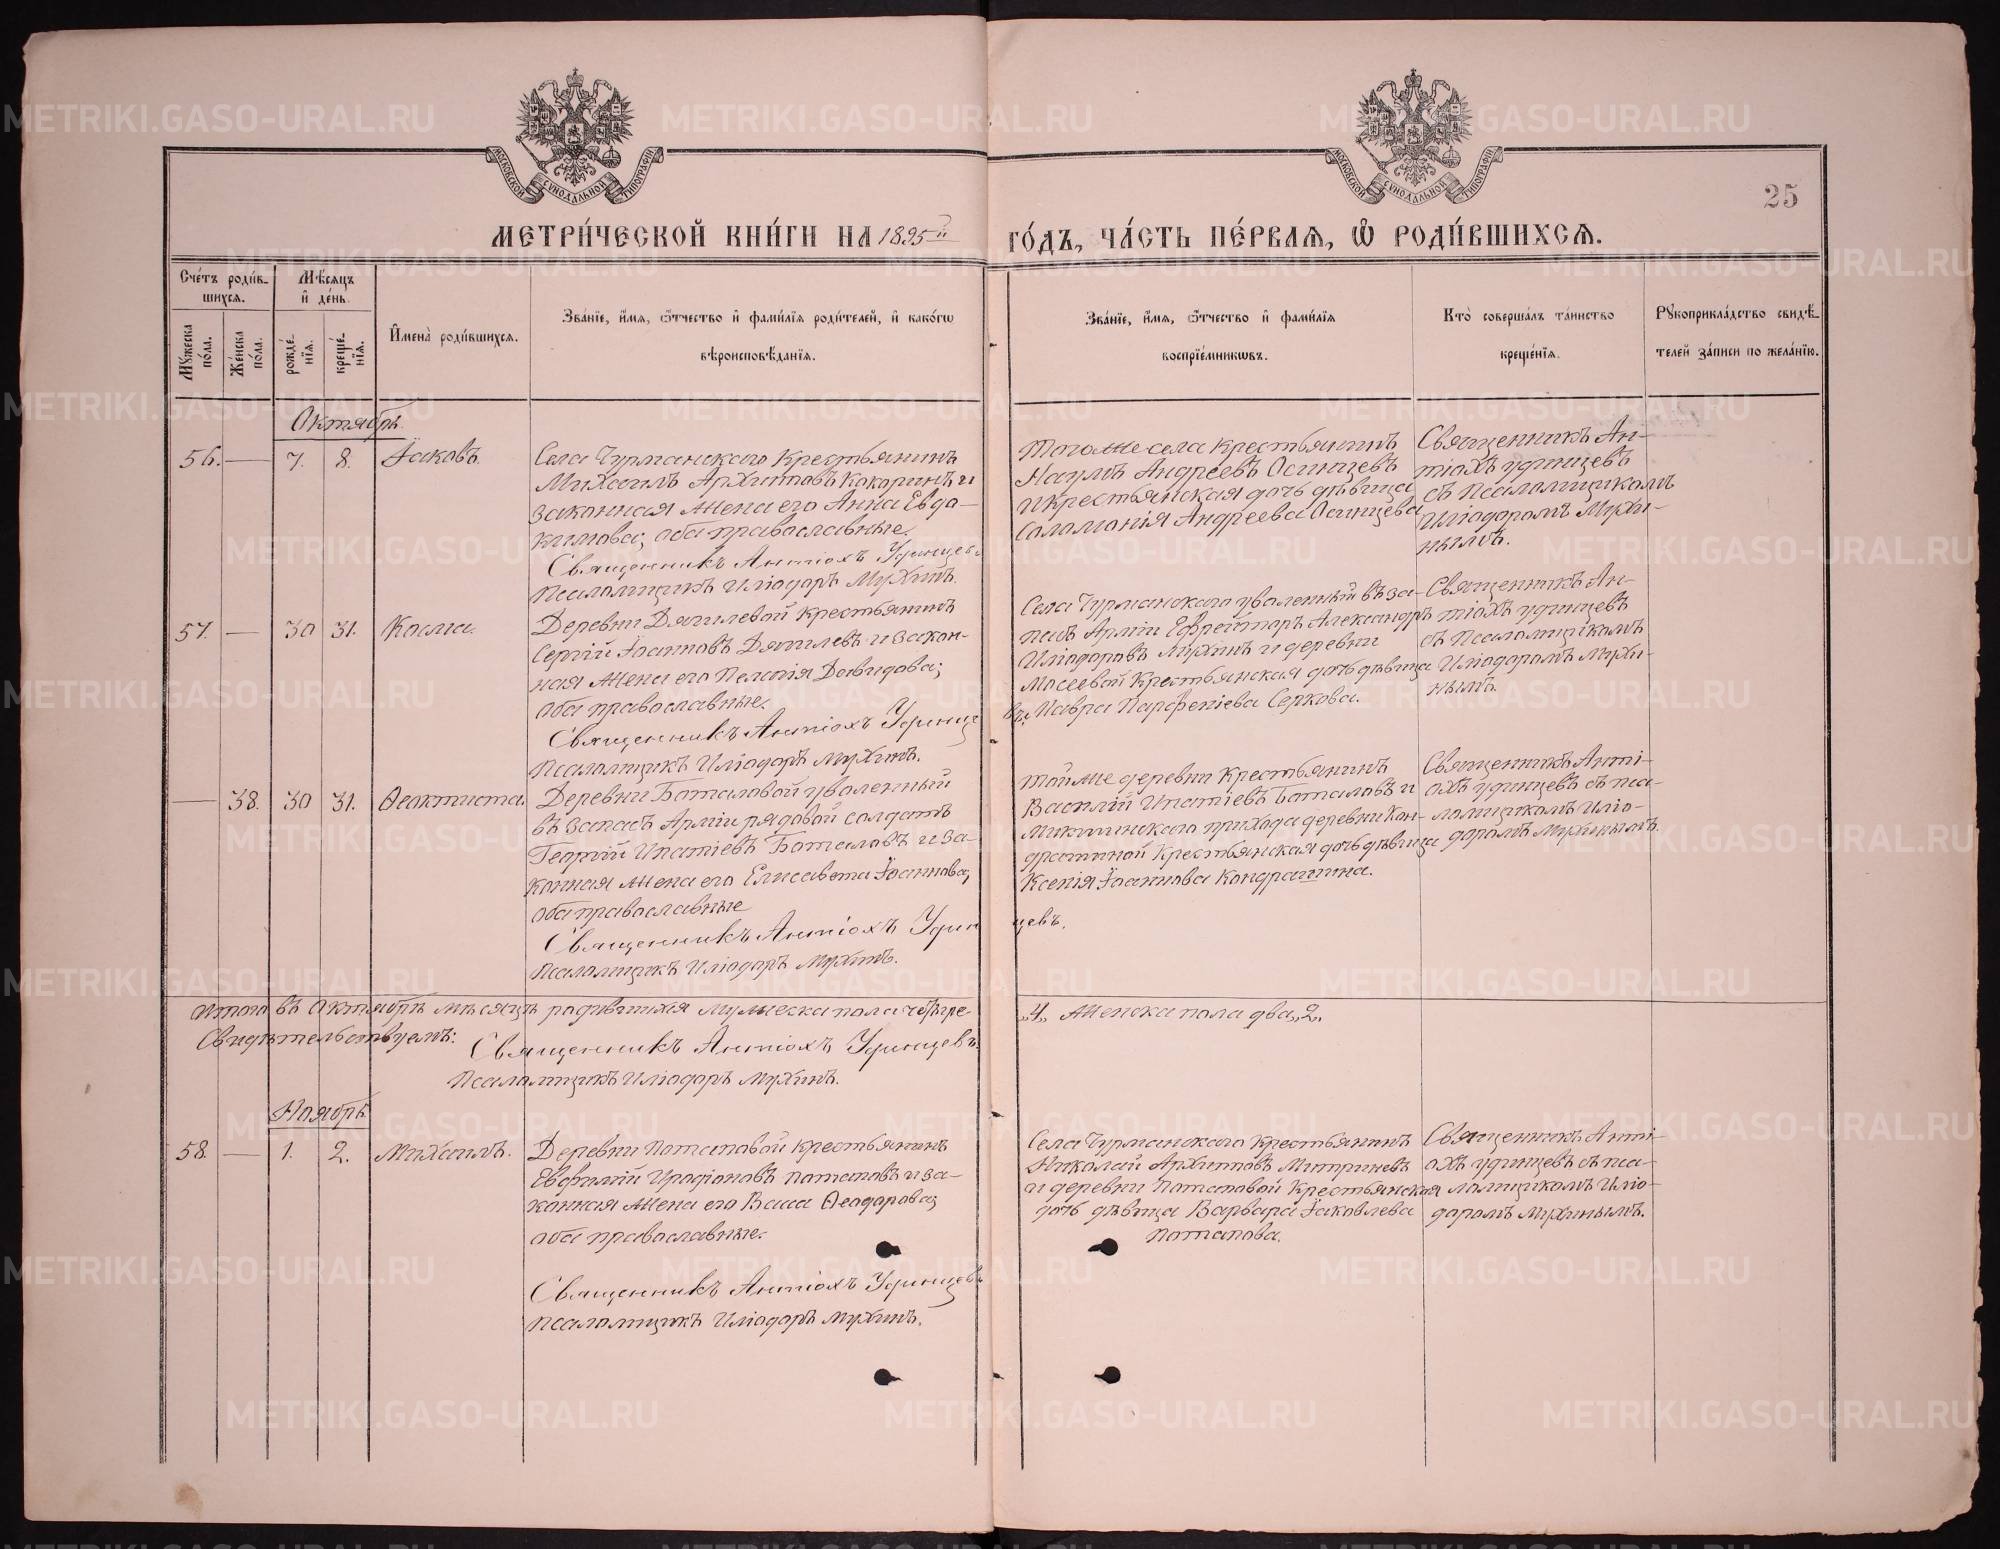 25
МЕТРИ́ЧЕСКОЙ КНИ́ГИ НА 1895й ГО́ДЪ, ЧА́СТЬ ПЕ́РВАЯ, Ѡ РОДИ́ВШИХСЯ.
Сче́тъ роди́в-
шихся.
Мѣ́сяцъ
и де́нь.
Му́жеска по́ла.
Же́нска по́ла.
рожде́нїя.
креще́нїя.
Имена̀ роди́вшихся.
Зва́нїе, и́мя, ѻ́тчество и фами́лїя роди́телей, и како́гѡ
вѣроисповѣ́данїя.
Зва́нїе, и́мя, ѻ́тчество и фами́лїя
воспрїе́мникѡвъ.
Кто̀ соверша́лъ та́инство
креще́нїя.
Рꙋкоприкла́дство свидѣ́-
телей за́писи по жела́нїю.
Октябрь.
56. — 7. 8. Іаковъ.
Села Чурманскаго Крестьянинъ
Михаилъ Архиповъ Какаринъ и
законная жена его Анна Евдо-
кимова; оба православные.
Священникъ Антіохъ Удинцевъ
Псаломщикъ Иліодоръ Мухинъ.
Того же села Крестьянинъ
Наумъ Андреевъ Осинцевъ
и крестьянская дочь дѣвица
Саломанія Андреева Осинцева
Священникъ Ан-
тіохъ Удинцевъ
съ Псаломщикомъ
Иліодоромъ Мухи-
нымъ.
57. — 30 31. Косма.
Деревни Дягилевой Крестьянинъ
Сергій Іоанновъ Дягилевъ и закон-
ная жена его Пелагія Давидова;
оба православные.
Священникъ Антіохъ Удинце
Псаломщикъ Иліодоръ Мухинъ.
Села Чурманскаго уволенный въ за-
пасъ Арміи Ефрейторъ Александръ
Иліодоровъ Мухинъ и деревни
Мосеевой Крестьянская дочь дѣвица
въ. Мавра Парфеніева Серкова.
Священникъ Ан-
тіохъ Удинцевъ
съ Псаломщикомъ
Иліодоромъ Мухи-
нымъ.
— 38. 30 31. Ѳеоктиста.
Деревни Боталовой уволенный
въ запасъ Арміи рядовой солдатъ
Георгій Ипатіевъ Боталовъ и за-
конная жена его Елисавета Іоаннова;
оба православные
Священникъ Антіохъ Удин
цевъ.
Псаломщикъ Иліодоръ Мухинъ.
Той же деревни Крестьянинъ
Василій Ипатіевъ Боталовъ и
прихода деревни Кон-
драшиной Крестьянская дочь дѣвица
Ксенія Іоаннова Кондрашина.
Священникъ Анті-
охъ Удинцевъ съ пса-
ломщикомъ Иліо-
доромъ Мухинымъ.
Итого въ Октябрѣ мѣсяцѣ родившихся мужеска пола четыре- „4„ Женска пола два „2„
Свидѣтельствуемъ:
Священникъ Антіохъ Удинцевъ.
Псаломщикъ Иліодоръ Мухинъ.
Ноябрь
58. — 1. 2. Михаилъ.
Деревни Потаповой Крестьянинъ
Евфимій Иродіоновъ Потаповъ и за-
конная жена его Васса Ѳеодорова;
оба православные.
Священникъ Антіохъ Удинцевъ
Псаломщикъ Иліодоръ Мухинъ.
Села Чурманскаго Крестьянинъ
Николай Архиповъ Митриневъ
и деревни Потаповой Крестьянская
дочь дѣвица Варвара Іаковлева
Потапова.
Священникъ Анті-
охъ Удинцевъ съ пса-
ломщикомъ Иліо-
доромъ Мухинымъ.
METRIKI.GASO-URAL.RU